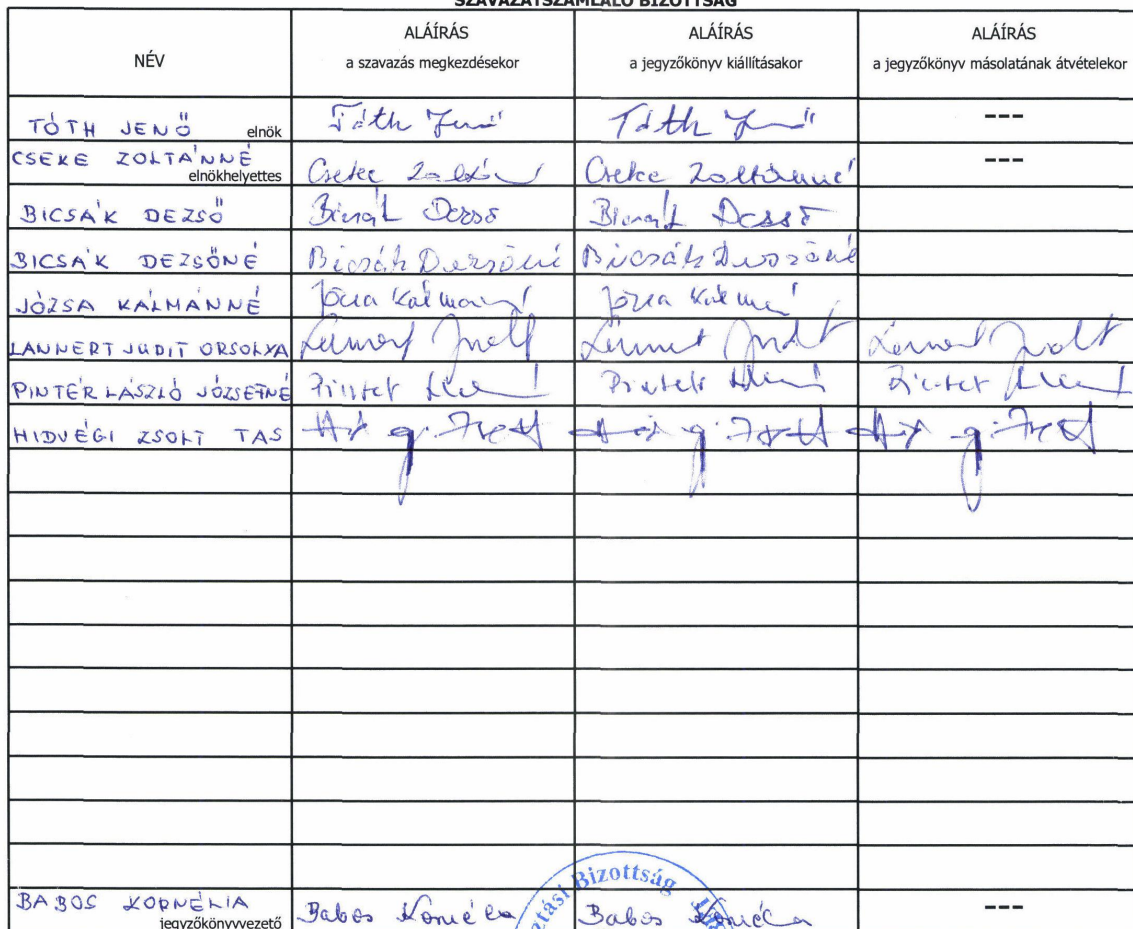 SZAVAZATSZÁMLÁLÓ BIZOTTSÁG
NÉV
ALÁÍRÁS
a szavazás megkezdésekor
ALÁÍRÁS
a jegyzőkönyv kiállításakor
ALÁÍRÁS
a jegyzőkönyv másolatának átvételekor
TÓTH JENŐ elnök Tóth Jenő Tóth Jenő ---
CSEKE ZOLTÁNNÉ elnökhelyettes Cseke Cseke Zoltánné ---
BICSÁK DEZSŐ Bicsák Dezső Bicsák Dezső
BICSÁK DEZSŐNÉ Bicsák Dezsőné Bicsák Dezsőné
JÓZSA KÁLMÁNNÉ Józsa Józsa
LANNERT JUDIT ORSOLYA Lannert Judit Lannert Judit Lannert Judit
PINTÉR LÁSZLÓ JÓZSEFNÉ Pintér Pintér Pintér
HIDVÉGI ZSOLT TAS
BABOS KORNÉLIA jegyzőkönyvvezető Babos Kornélia Babos Kornélia ---
Bizottság